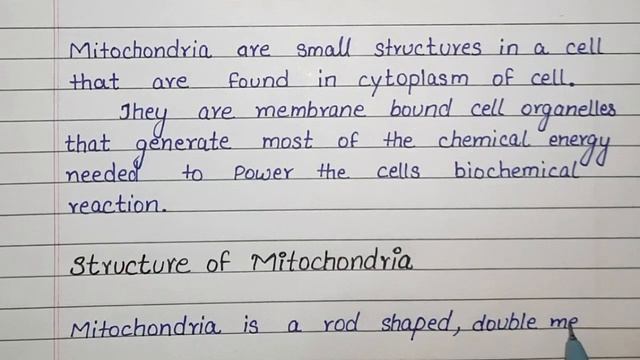 Mitochondria are small structures in a cell
that are found in cytoplasm of cell.
They are membrane bound cell organelles
that generate most of the chemical energy
needed to power the cells biochemical
reaction.
Structure of Mitochondria
Mitochondria is a rod shaped, double me